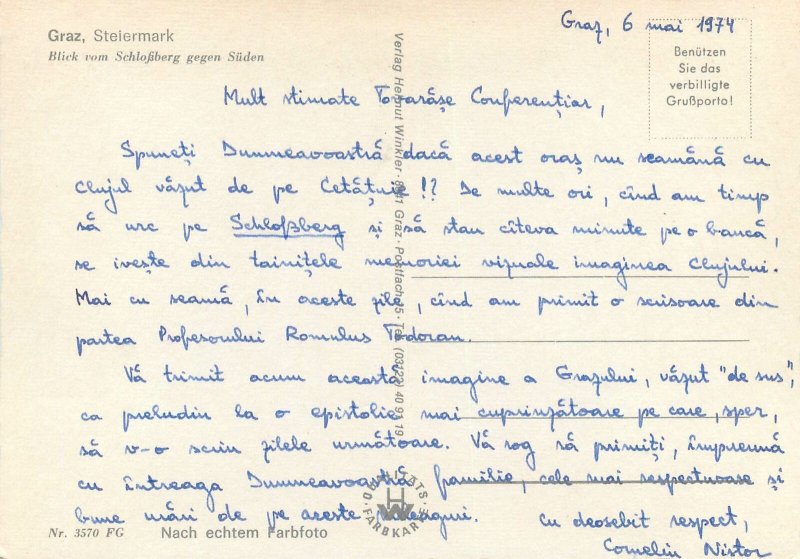 Graz, Steiermark
Blick vom Schloßberg gegen Süden
Graz, 6 mai 1974
Benützen
Sie das
verbilligte
Grußporto!
Mult stimate Tovarășe Conferențiar,
Spuneți Dumneavoastră dacă acest oraș nu seamănă cu
Clujul văzut de pe Cetățuie!? De multe ori, cînd am timp
să urc pe Schloßberg și să stau cîteva minute pe o bancă,
se ivește din tainițele memoriei vizuale imaginea Clujului.
Mai cu seamă, în aceste zile, cînd am primit o scrisoare din
partea Profesorului Romulus Todoran.
Vă trimit acum această imagine a Grazului, văzut "de sus",
ca preludiu la o epistolie mai cuprinzătoare pe care, sper,
să v-o scriu zilele următoare. Vă rog să primiți, împreună
cu întreaga Dumneavoastră familie, cele mai respectuoase și
bune urări de pe aceste meleaguri.
Cu deosebit respect,
Corneliu Nistor
Verlag Helmut Winkler · 8011 Graz · Postfach · Tel. (03122) 40 91 19
QUALITÄTS-
FARBKARTE
HW
Nr. 3570 FG
Nach echtem Farbfoto